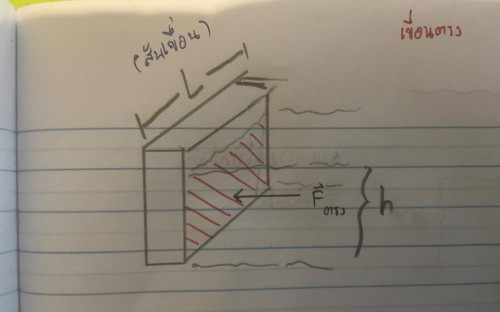 เขื่อนตรง
(สันเขื่อน)
L
F ตรง
h